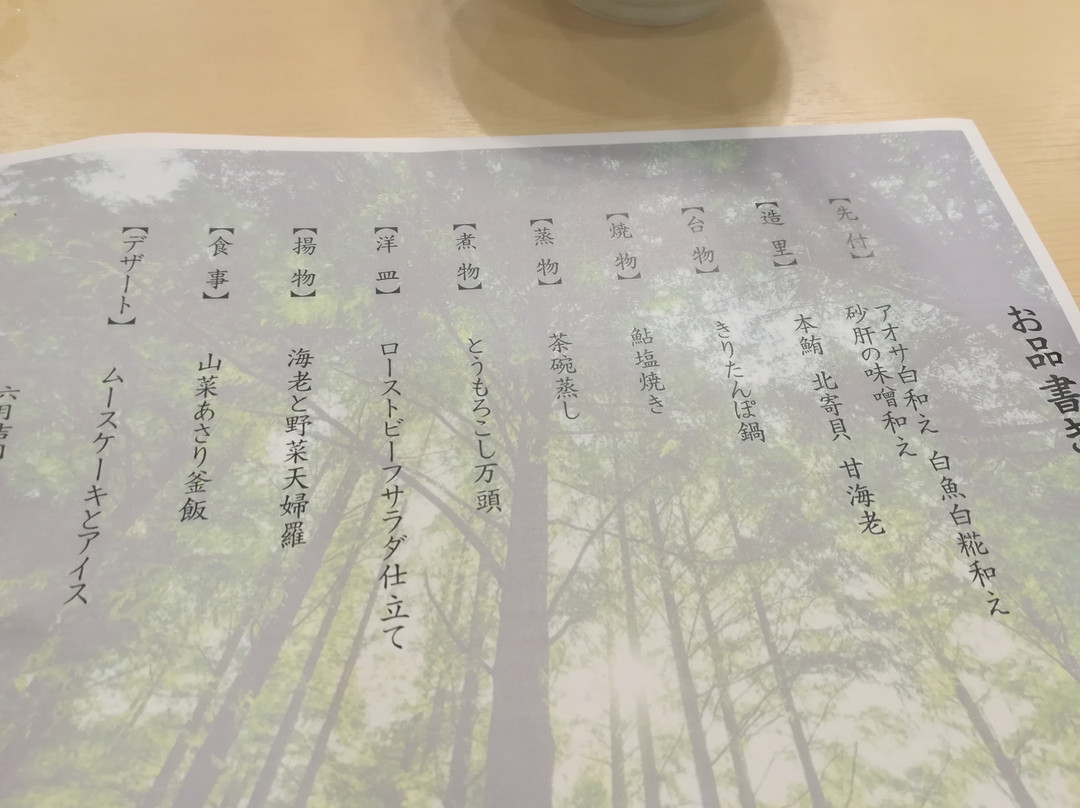 お品書き
【先付】
アオサ白和え 白魚白糀和え
砂肝の味噌和え
【造里】
本鮪 北寄貝 甘海老
【台物】
きりたんぽ鍋
【焼物】
鮎塩焼き
【蒸物】
茶碗蒸し
【煮物】
とうもろこし万頭
【洋皿】
ローストビーフサラダ仕立て
【揚物】
海老と野菜天婦羅
【食事】
山菜あさり釜飯
【デザート】
ムースケーキとアイス
六月吉日